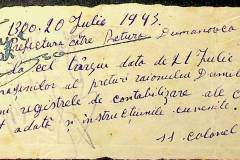 1300. 20 Iulie 1943.
Prefectura către Pretura Dumanovca
cel târziu data de 21 Iulie
al preturi raionului
registrele de contabilizare ale
odată și instrucțiunile cuvenite.
ss. colonel